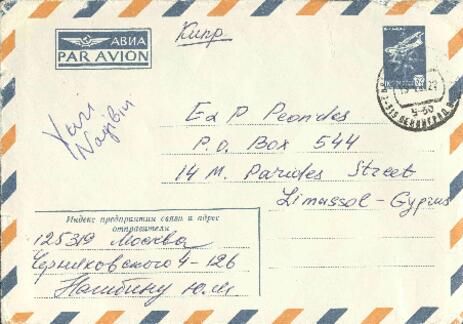 АВИА
PAR AVION
Кипр
Yuri
Nagibin
Ed P Peondes
P.O. Box 544
14 M. Parides Street
Limassol - Cyprus
Индекс предприятия связи и адрес
отправителя
125319 Москва
Черняховского 4-126
Нагибину Юли